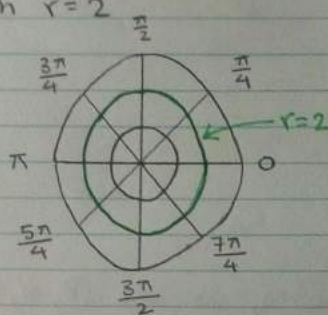 r=2
π/2
3π/4
π/4
r=2
π
0
5π/4
7π/4
3π/2